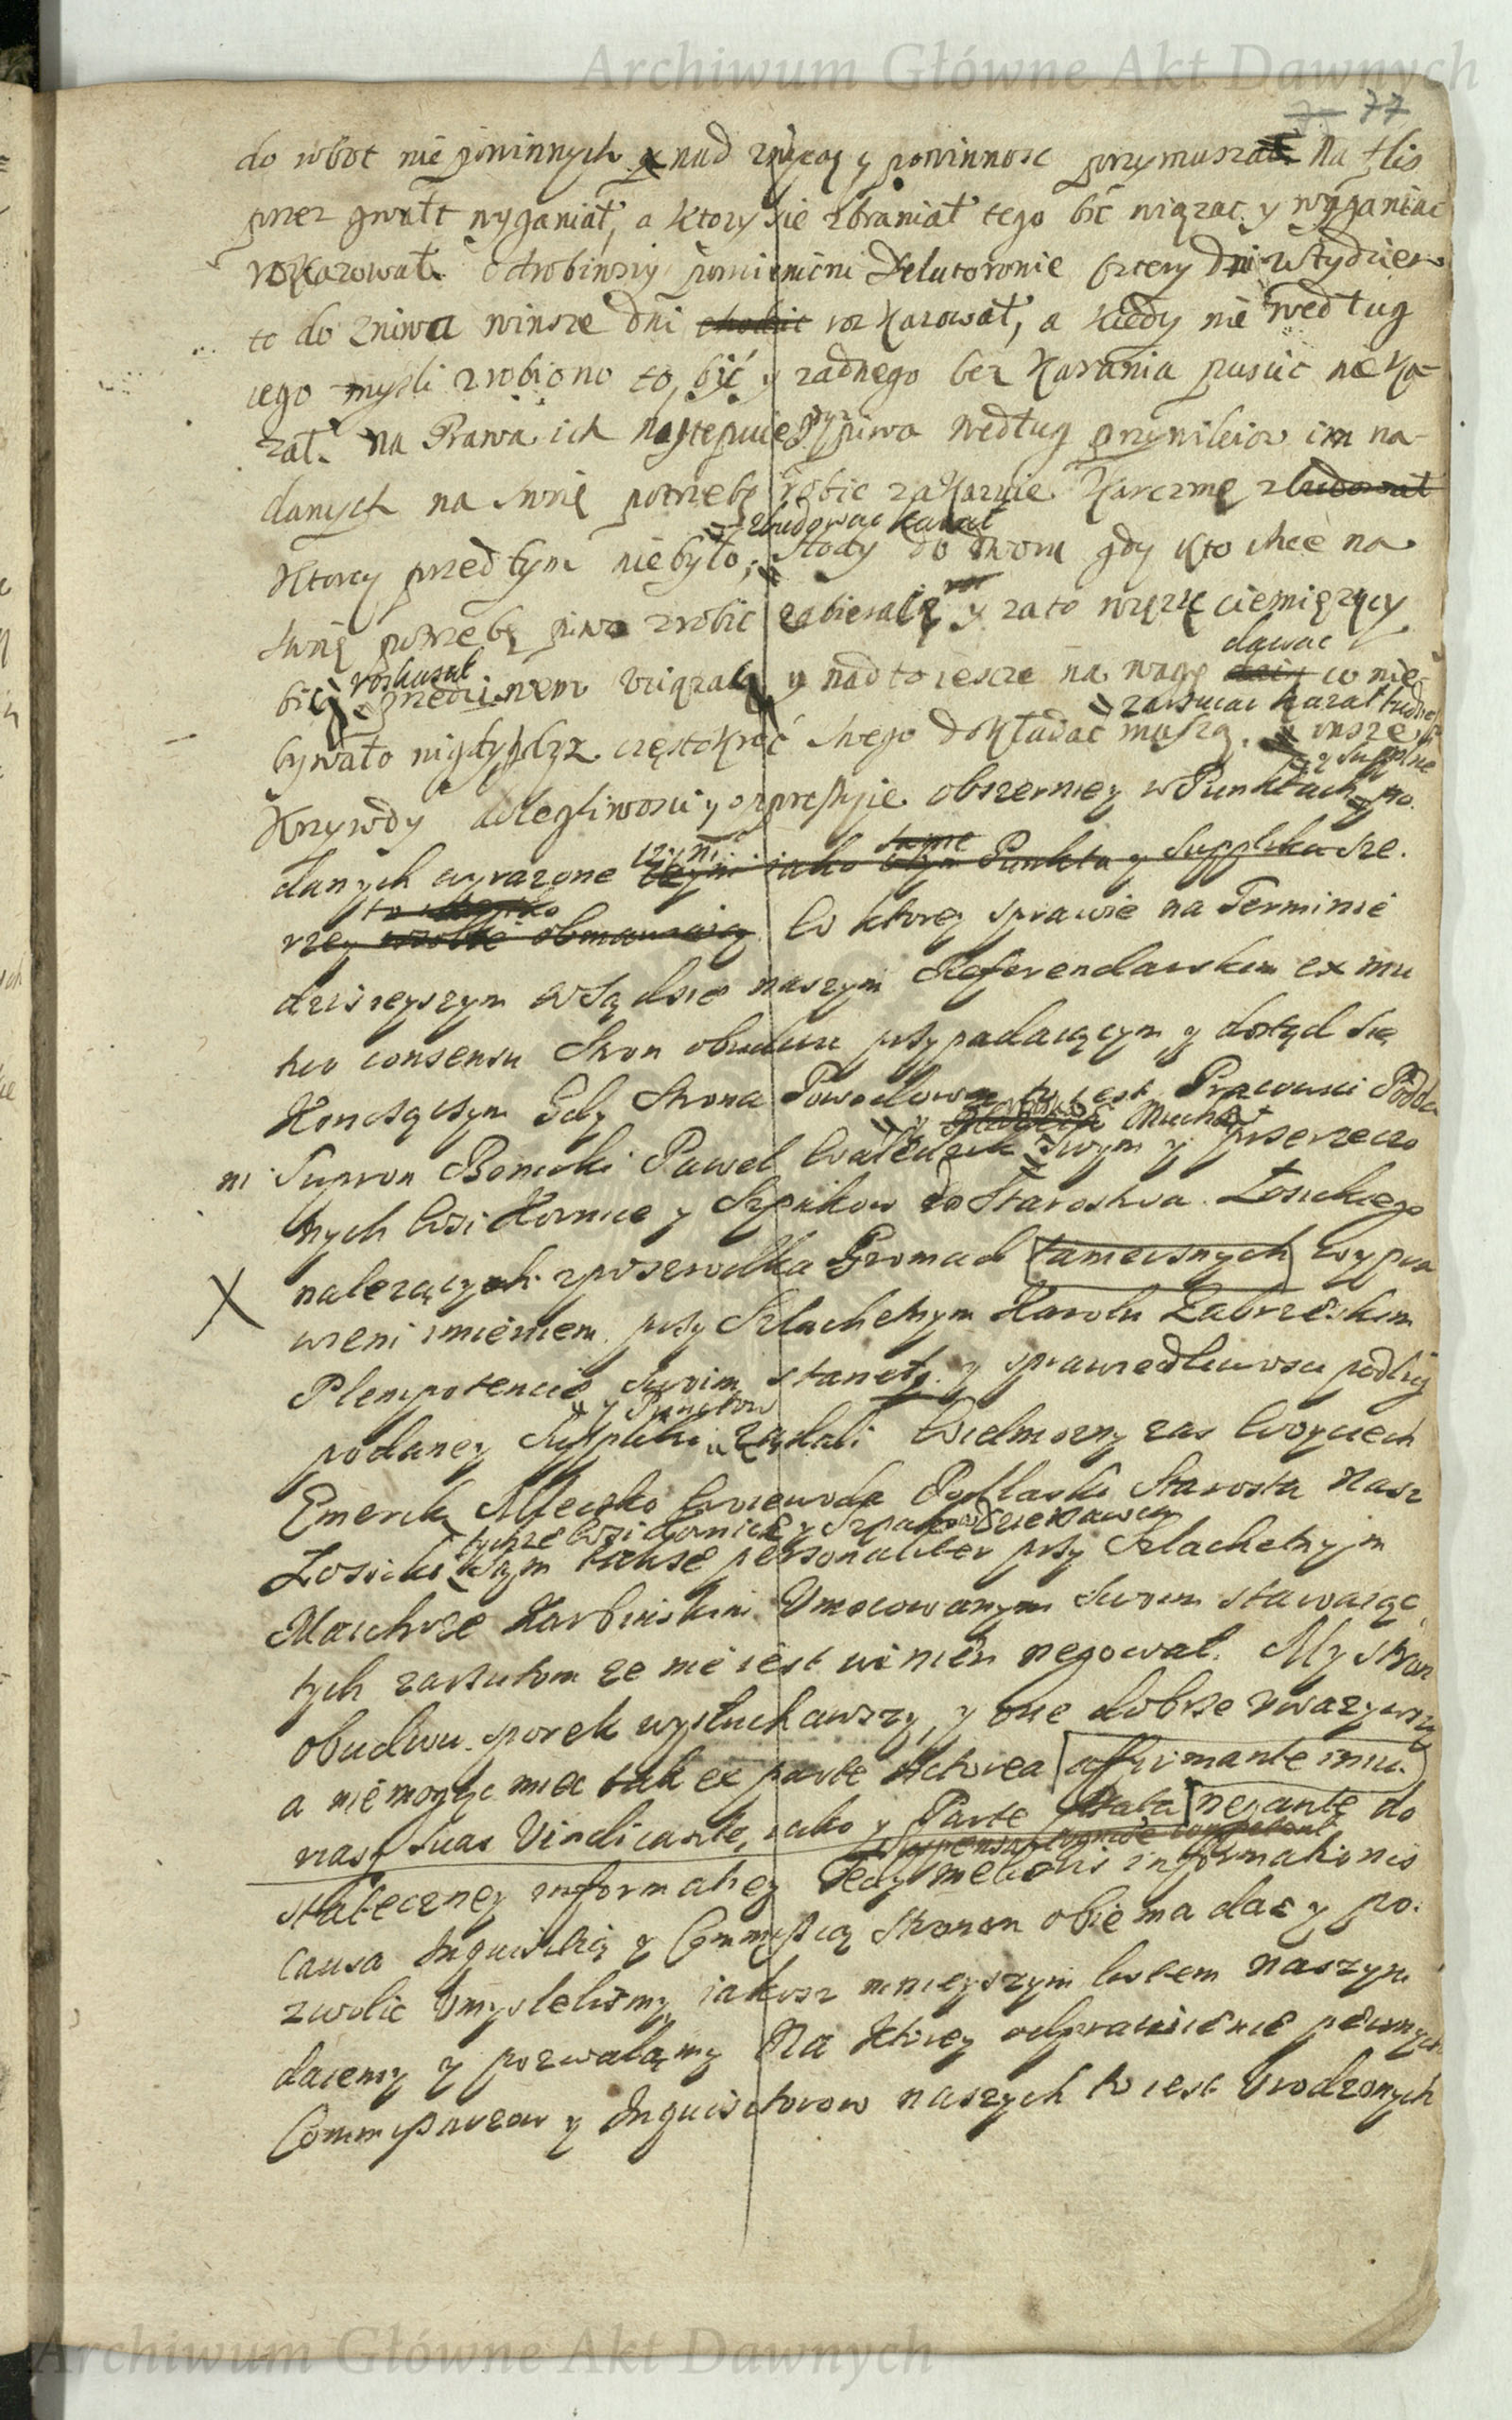 Archiwum Główne Akt Dawnych
77
do robot nie powinnych nad zwyczay y powinnosc przymuszał Na flis
przez gwałt wyganiał, a ktory sie zbraniał tego bić wiązac y wyganiac
rozkazował. Odrobiwszy pomienieni Delatorowie cztery dni w tydzien
to do zniwa winsze dni chodzic rozkazował, a kiedy nie według
iego mysli zrobiono to bić y zadnego bez karania puscic nie ka-
zał. na Prawa ich następuie gdyz piwa według przywileiow im na-
danych na swoię potrzebę robic zakazuie Karczmę zbudował
zbudowac kazał
ktorey przedtym nie było, słody do dworu gdy kto chce na
swoię potrzebę piwo zrobic zabieraią y za to wręzę ciemięzący
roskazał dawac
bić przed nem wiązac y nad to iescze na wagę co nie
zarzucac kazał
bywało nigdy gdyz częstokroć swego dokładać muszą. insze
y Supplice
Krzywdy dolegliwosci y oppressyie obszerniey w Punktach po.
danych wyrazone iako same Punkta y Supplika sze.
rzey w sobie obmawiaią W ktorey sprawie na Terminie
dzisieyszym w Sądzie naszym Referendarskim ex mu
tuo consensu Stron obudwu przypadaiącym y dotąd się
Konczącym Gdy Strona Powodowa to iest Pracowici Podda
ni Supron Bonicki Paweł Walczuk Swym y przerzeczo
nych Wsi Kornice y Szpakow do Starostwa Łosickiego
nalezących zposrodka Gromad tamecznych wypra
wieni imieniem przy Szlachetnym Karolu Zabrzeskim
Plenipotencie Swoim stanęły y sprawiedliwosci podług
y Punctow
podaney Suppliki ządali Wielmozny zas Woyciech
Emeryk Mleczko Woiewoda Podlaski Starosta Nasz
tychze Wsi Kornice y Szpakow Dzierzawca
Łosicki Sam takze personaliter przy Szlachetnym
Maichrze Karbinskim Umocowanym Swoim stawaiąc
tych zarzutow ze nie iest winien negował. My stron
obudwu sporek wysłuchawszy y one dobrze uwazywszy
a niemogąc miec tak ex parte Actorea affirmante iniu.
rias suas Vindicante, iako y Parte negante do
stateczney informatiey Tedy melioris informationis
causa Inquisitią y Commissią Stronom obiema dac y po.
zwolic Umyslelismy iakosz ninieyszym listem naszym
daiemy y pozwalamy Na ktorey odprawienie pewnych
Commissarzow y Inquisitorow naszych to iest Urodzonych
Archiwum Główne Akt Dawnych